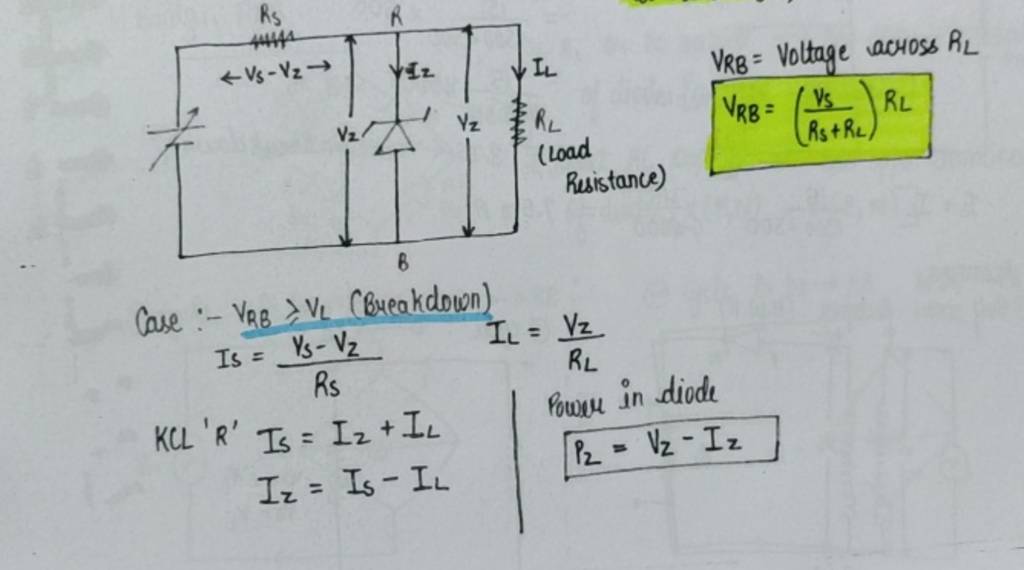 Rs
R
← Vs - Vz →
Iz
IL
Vz
Vz
RL
(Load
Resistance)
B
VRB = Voltage across RL
VRB = (Vs / Rs + RL) RL
Case :- VRB ≥ VL (Breakdown)
Is = Vs - Vz / Rs
IL = Vz / RL
KCL 'R' Is = Iz + IL
Iz = Is - IL
Power in diode
Pz = Vz - Iz